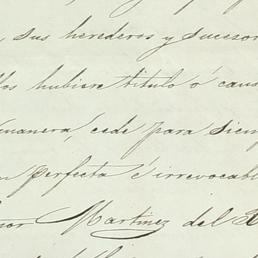 sus herederos y sucesor
los hubiere titulo ó caus
manera, cede para siem
perfecta é irrevocabl
Martinez del R